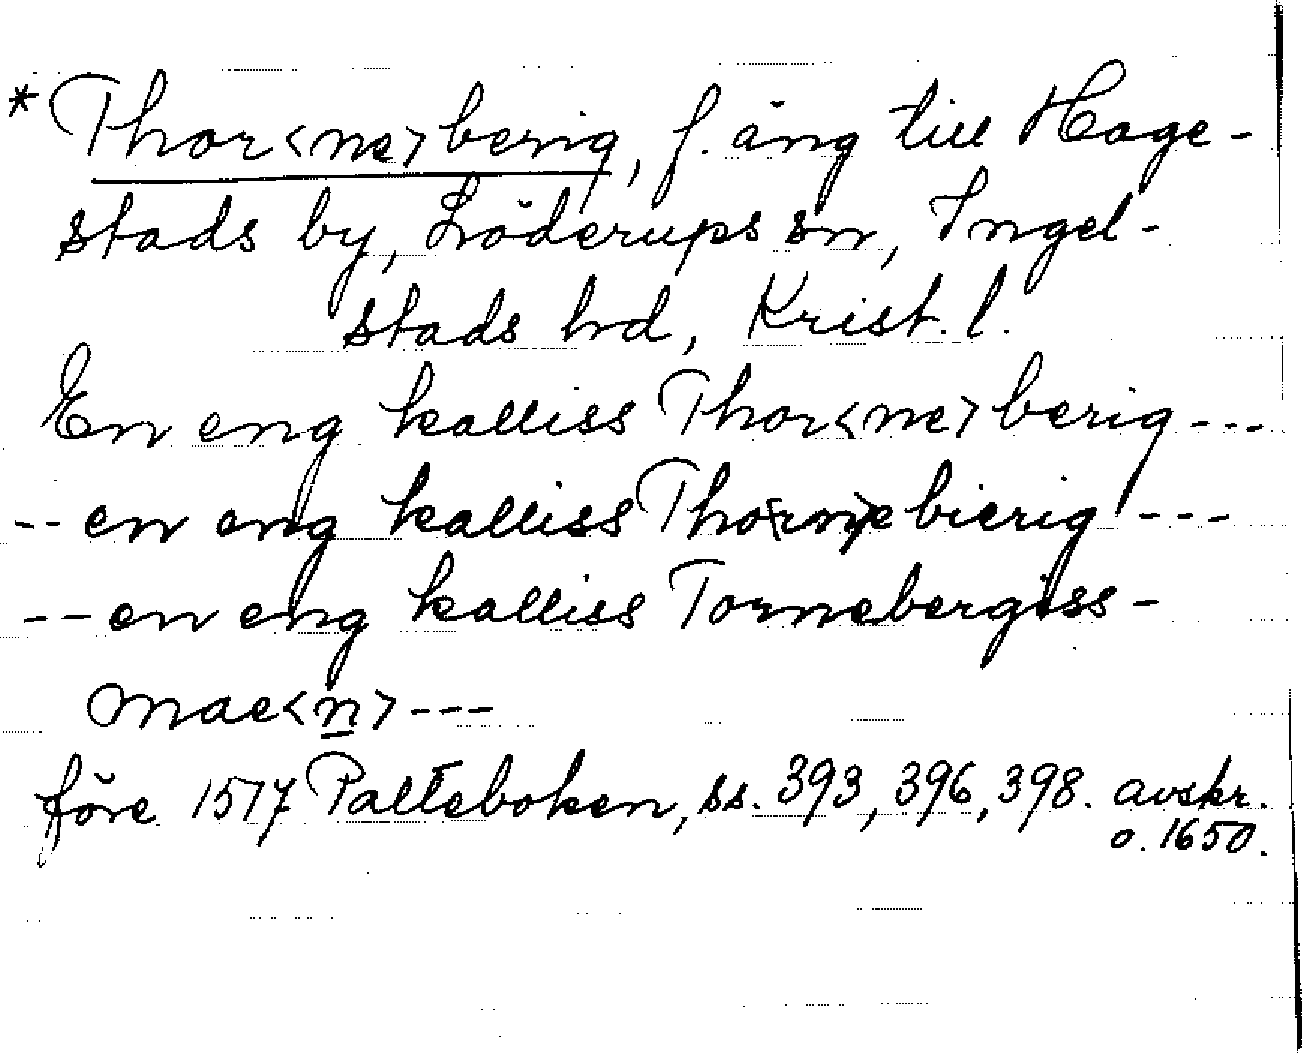 * Thor<ne>berig, f. äng till Hage-
stads by, Löderups sn, Ingel-
stads hd, Krist. l.
En eng kalliss Thor<ne>berig ---
-- en eng kalliss Tho<rn>ebierig ---
-- en eng kalliss Tornebergiss-
mae<n> ---
före 1517 Palteboken, ss. 393, 396, 398. avskr.
o. 1650.